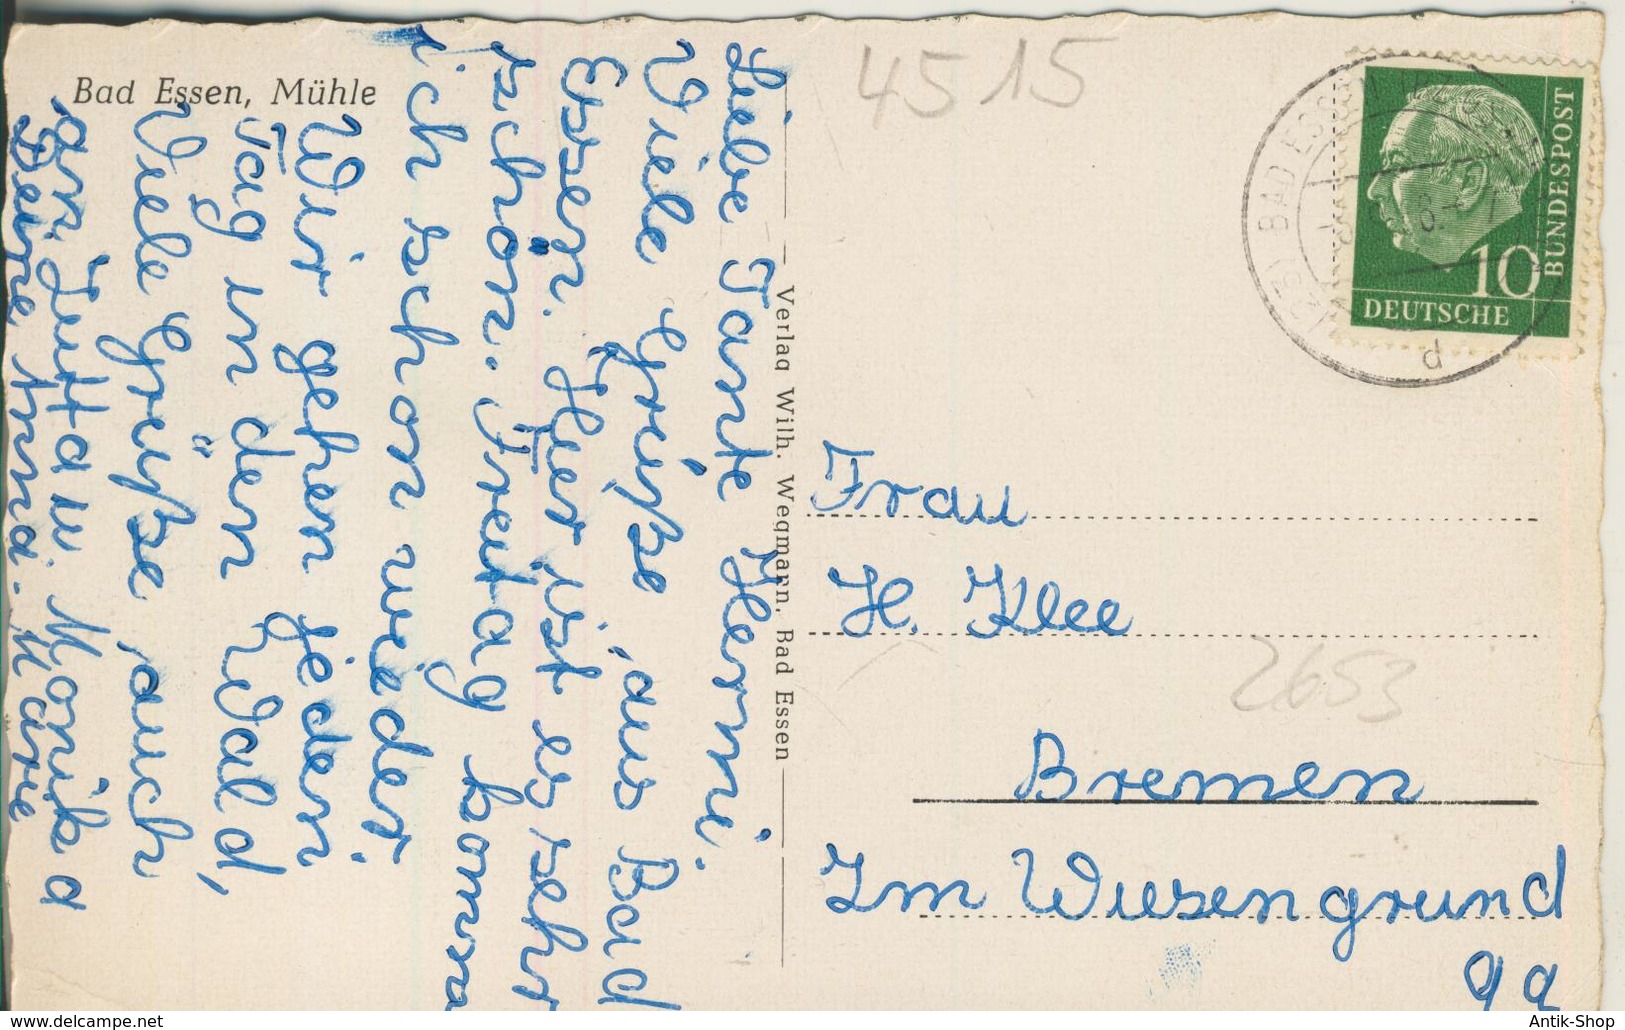 Bad Essen, Mühle
Liebe Tante Hermi.
Viele Grüße, aus Bad
Essen. Hier ist es sehr
schön. Freitag komm
ich schon wieder.
Wir gehen jeden
Tag in den Wald,
Viele Grüße, auch
an Jutta u. Monika
Deine Anna-Marie
Verlag Wilh. Wegmann, Bad Essen
4515
BAD ESSEN
d
10
DEUTSCHE
BUNDESPOST
Frau
H. Klee
2653
Bremen
Im Wiesengrund
9a
Antik-Shop
www.delcampe.net